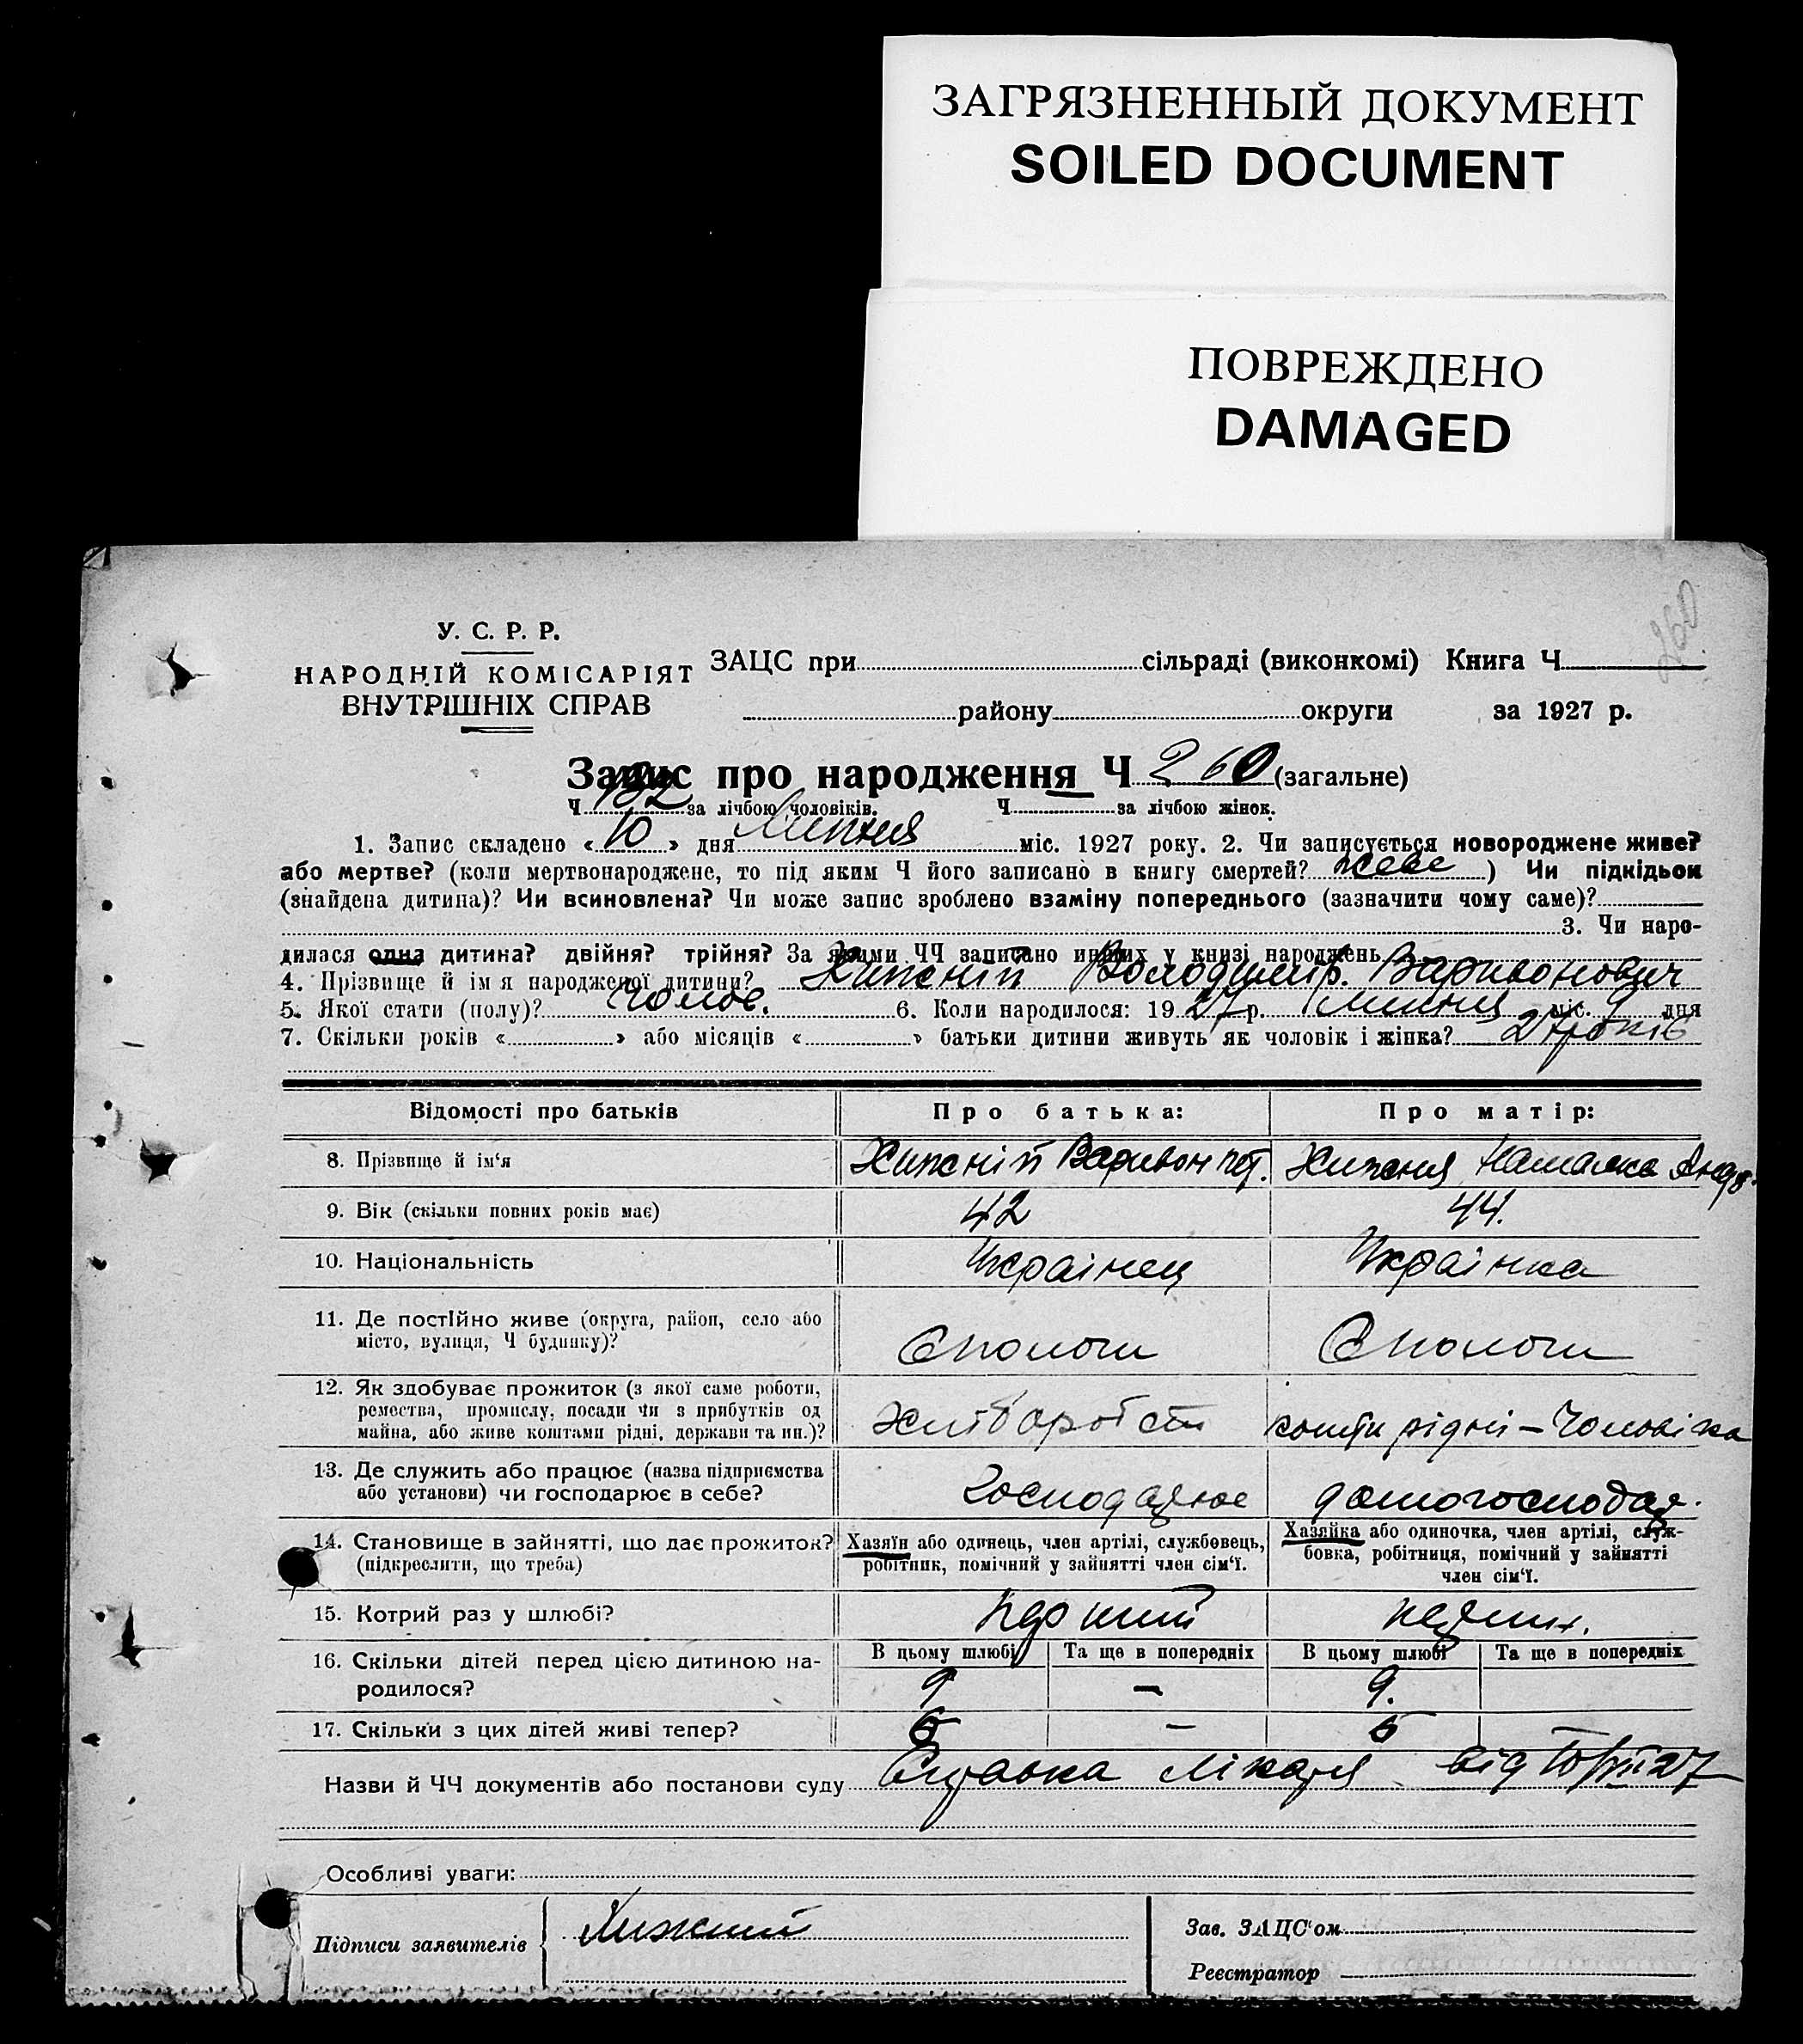 ЗАГРЯЗНЕННЫЙ ДОКУМЕНТ
SOILED DOCUMENT
ПОВРЕЖДЕНО
DAMAGED
260
У. С. Р. Р.
НАРОДНІЙ КОМІСАРІЯТ
ВНУТРІШНІХ СПРАВ
ЗАЦС при сільраді (виконкомі) Книга Ч
району округи за 1927 р.
Запис про народження Ч 260 (загальне)
Ч 132 за лічбою чоловіків. Ч за лічбою жінок.
1. Запис складено « 10 » дня Липня міс. 1927 року. 2. Чи записується новороджене живе?
або мертве? (коли мертвонароджене, то під яким Ч його записано в книгу смертей? живе ) Чи підкідьок
(знайдена дитина)? Чи всиновлена? Чи може запис зроблено взаміну попереднього (зазначити чому саме)?
3. Чи наро-
дилася одна дитина? двійня? трійня? За якими ЧЧ записано инших у книзі народжень
4. Прізвище й ім'я народженої дитини? Хижній Володимір. Варивонович
5. Якої стати (полу)? чолов. 6. Коли народилося: 1927 р. липня міс. 9 дня
7. Скільки років « » або місяців « » батьки дитини живуть як чоловік і жінка? 27 років
Відомості про батьків Про батька: Про матір:
8. Прізвище й ім‘я Хижній Варивон Хижня Наталка Андр.
9. Вік (скільки повних років має) 42 44.
10. Національність Українець Українка
11. Де постійно живе (округа, район, село або
місто, вулиця, Ч будинку)?
12. Як здобуває прожиток (з якої саме роботи,
ремества, промислу, посади чи з прибутків од
майна, або живе коштами рідні, держави та ин.)? кошти рідні – чоловіка
13. Де служить або працює (назва підприємства
або установи) чи господарює в себе? господарює домогосподар.
14. Становище в зайнятті, що дає прожиток?
(підкреслити, що треба)
Хазяїн або одинець, член артілі, службовець,
робітник, помічний у зайнятті член сім‘ї.
Хазяйка або одиночка, член артілі, служ-
бовка, робітниця, помічний у зайнятті
член сім‘ї.
15. Котрий раз у шлюбі? перший перших.
В цьому шлюбі Та ще в попередніх В цьому шлюбі Та ще в попередніх
16. Скільки дітей перед цією дитиною на-
родилося? 9 – 9.
17. Скільки з цих дітей живі тепер? 5 – 5
Назви й ЧЧ документів або постанови суду Справка лікаря від 10/VII 27
Особливі уваги:
Підписи заявителів Хижний
Зав. ЗАЦС‘ом
Реєстратор